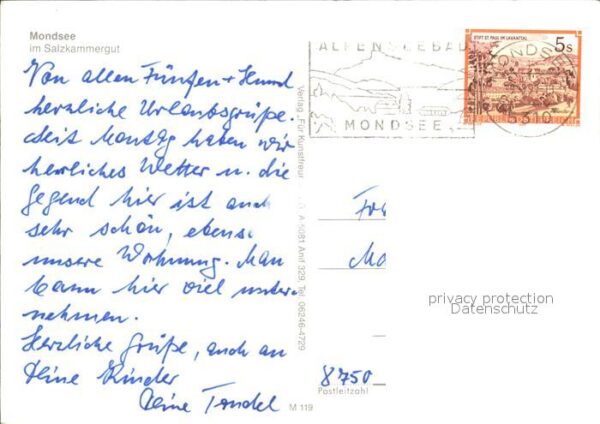 Mondsee
im Salzkammergut
Von allen Fünfen + Hund
herzliche Urlaubsgrüße.
Seit Montag haben wir
herrliches Wetter u. die
Gegend hier ist auch
sehr schön, ebenso
unsere Wohnung. Man
kann hier viel unter-
nehmen.
Herzliche Grüße, auch an
Deine Kinder
Deine
M 119
Verlag „Für Kunstfreun
A-5081 Anif 329, Tel. 06246-4729
ALPENSEEBAD
MONDSEE
STIFT ST. PAUL IM LAVANTTAL
5s
MONDSEE
5310
Fr
Mo
8750
Postleitzahl
privacy protection
Datenschutz